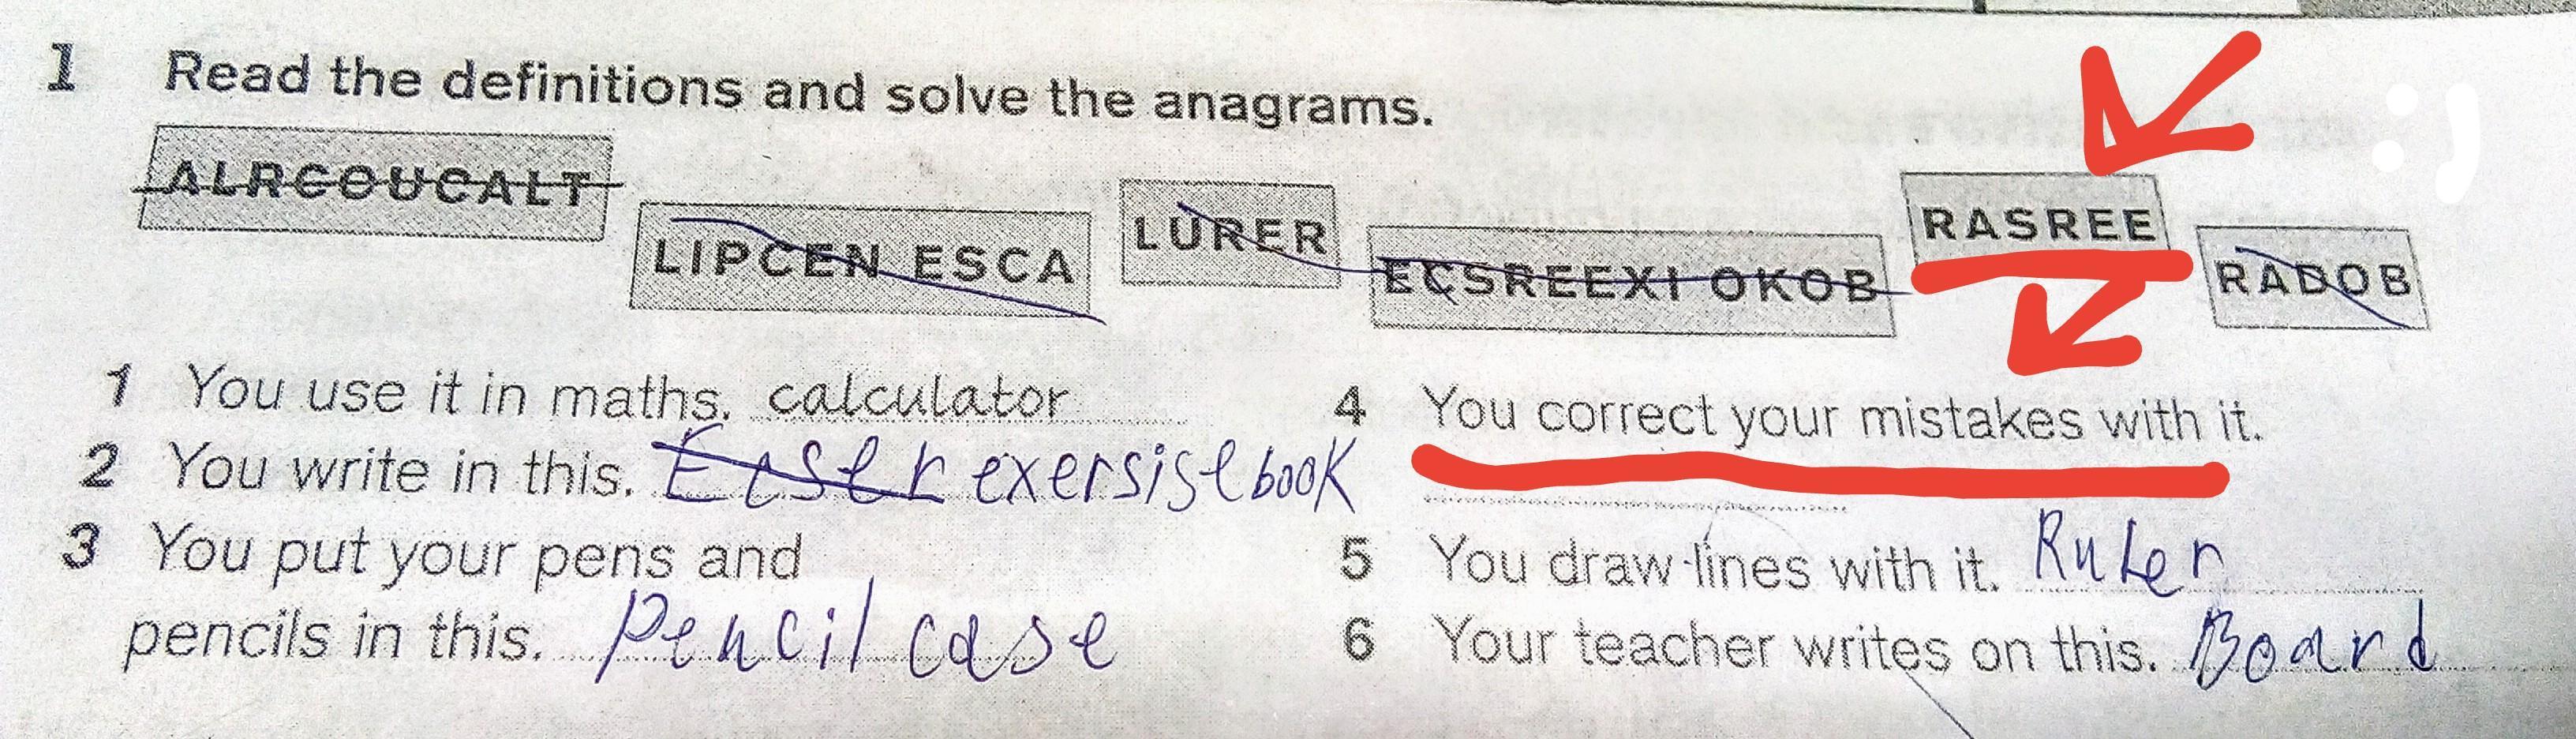 1 Read the definitions and solve the anagrams.
ALRCOUCALT
LIPCEN ESCA
LURER
ECSREEXI OKOB
RASREE
RADOB
:)
1 You use it in maths. calculator
2 You write in this. Ecser exersise book
3 You put your pens and
pencils in this. Pencil case
4 You correct your mistakes with it.
5 You draw lines with it. Ruler
6 Your teacher writes on this. Board